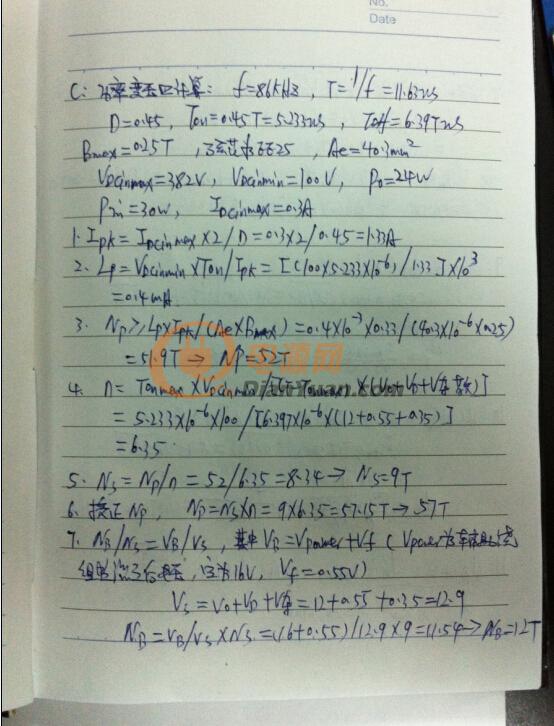 No.
Date
C: 功率变压口计算: f=86KHz, T=1/f=11.63us
D=0.45, Ton=0.45T=5.233us, Toff=6.397us
Bmax=0.25T, 磁芯为EE25, Ae=40.3mm²
VDCinmax=382V, VDCinmin=100V, Po=24W
Pin=30W, IDCinmax=0.3A
1. Ipk=IDCinmax×2/D=0.3×2/0.45=1.33A
2. Lp=VDCinmin×Ton/Ipk=[(100×5.233×10⁻⁶)/1.33]×10³
=0.4mH
3. Np≥Lp×Ipk/(Ae×Bmax)=0.4×10⁻³×0.33/(40.3×10⁻⁶×0.25)
=51.9T→Np=52T
电源网
DianYuan.com
4. n=Tonmax×VDCinmin/[(T-Tonmax)×(Vo+VD+V)]
=5.233×10⁻⁶×100/[6.397×10⁻⁶×(12+0.55+0.35)]
=6.35
5. Ns=Np/n=52/6.35=8.34→Ns=9T
6. 校正Np, Np=Ns×n=9×6.35=57.15T→57T
7. NB/Ns=VB/Vs, 其中VB=Vpower+Vf (Vpower为
组的电压, 为16V, Vf=0.55V)
Vs=Vo+VD+V=12+0.55+0.35=12.9
NB=VB/Vs×Ns=(16+0.55)/12.9×9=11.54→NB=12T